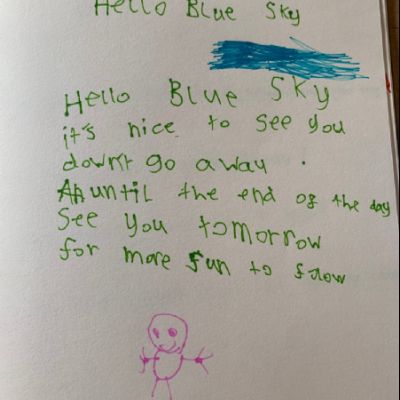 Hello Blue Sky
Hello Blue Sky
it's nice to see you
down't go away .
until the end of the day
See you tomorrow
for more fun to folow